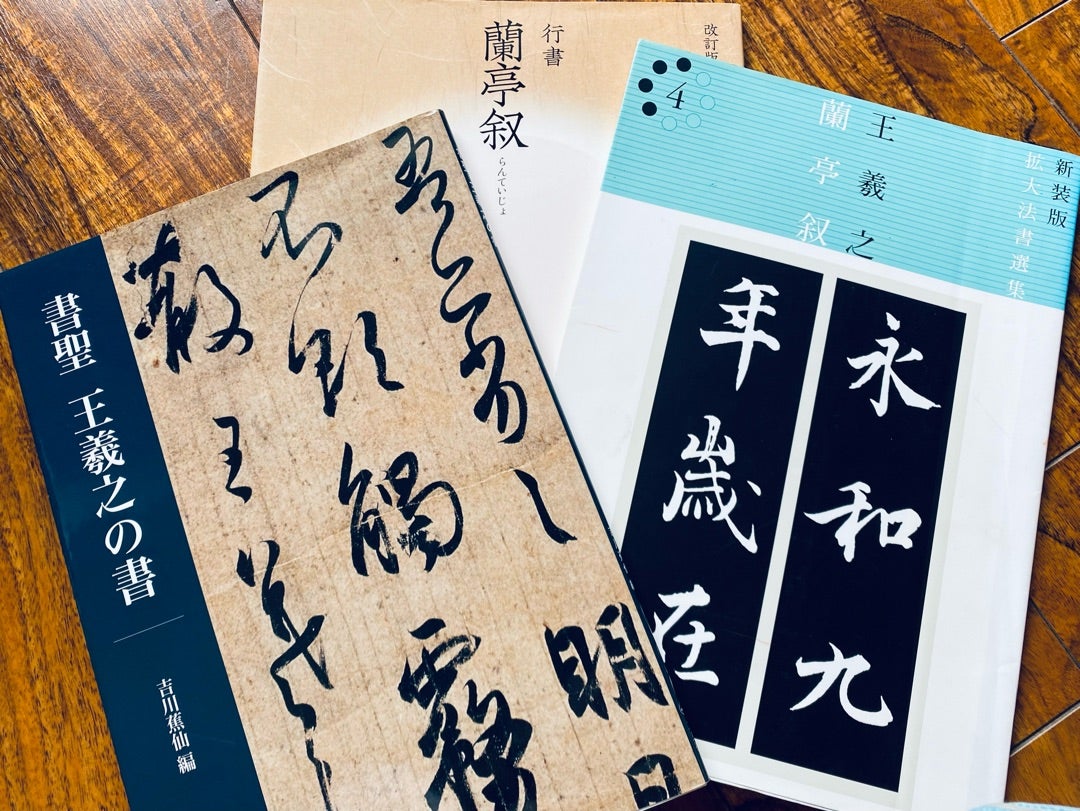 行書
蘭亭叙
らんていじょ
改訂版
4
王羲之
蘭亭叙
新装版
拡大法書選集
永和九
年歳在
書聖 王羲之の書
吉川蕉仙 編
不
觸霧
明